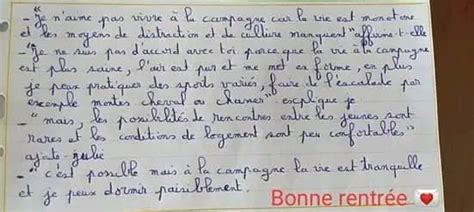 - "je n'aime pas vivre à la campagne car la vie est monotone
et les moyens de distraction et de culture manquent" affirme-t-elle
- "je ne suis pas d'accord avec toi parce que la vie à la campagne
est plus saine, l'air est pur et me met en forme, en plus
je peux pratiquer des sports variés, faire de l'escalade par
exemple montes cheval ou chasser" explique je
- "mais, les possibilités de rencontres entre les jeunes sont
rares et les conditions de logement sont peu confortables"
ajoute-julié
- "c'est possible mais à la campagne la vie est tranquille
et je peux dormir paisiblement.
Bonne rentrée ❤